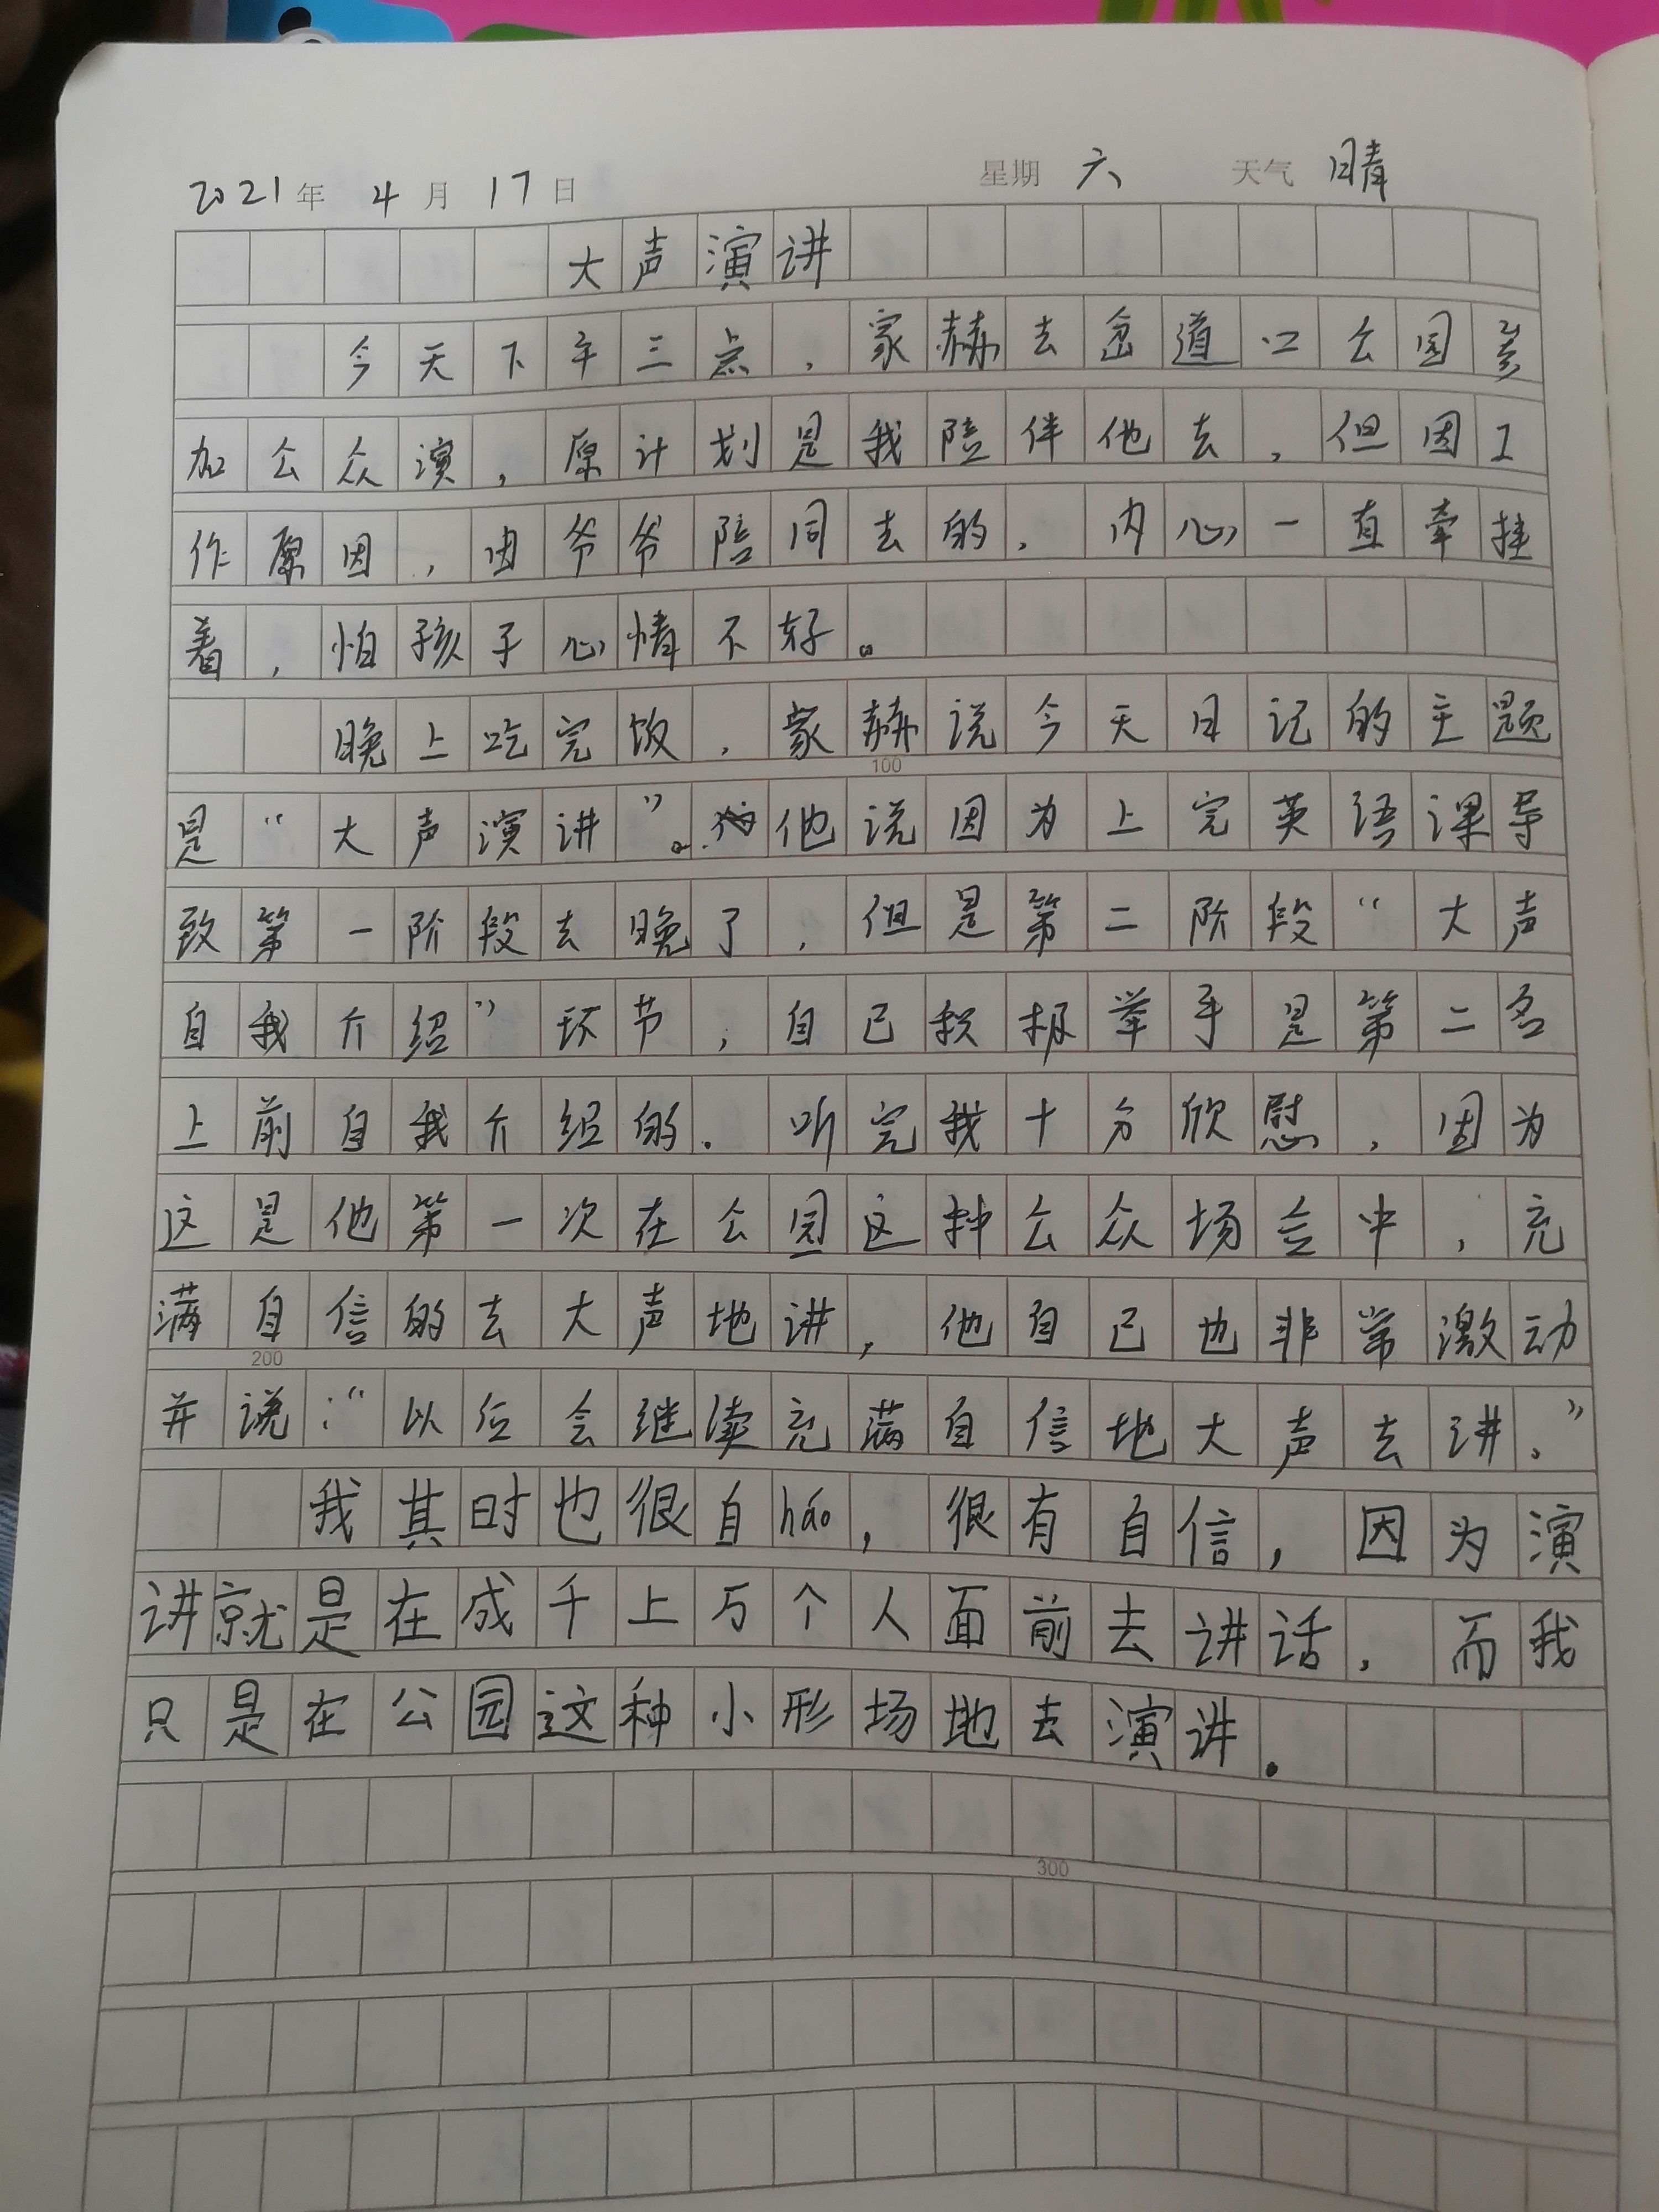 2021年 4月 17日 星期 六 天气 晴
大声演讲
今天下午三点,家赫去岔道口公园参
加公众演,原计划是我陪伴他去,但因工
作原因,由爷爷陪同去的,内心一直牵挂
着,怕孩子心情不好。
晚上吃完饭,家赫说今天日记的主题
100
是“大声演讲”。他说因为上完英语课导
致第一阶段去晚了,但是第二阶段“大声
自我介绍”环节,自己积极举手是第二名
上前自我介绍的.听完我十分欣慰,因为
这是他第一次在公园这种公众场合中,充
满自信的去大声地讲,他自己也非常激动
200
并说:“以后会继续充满自信地大声去讲.”
我其时也很自háo,很有自信,因为演
讲就是在成千上万个人面前去讲话,而我
只是在公园这种小形场地去演讲.
300